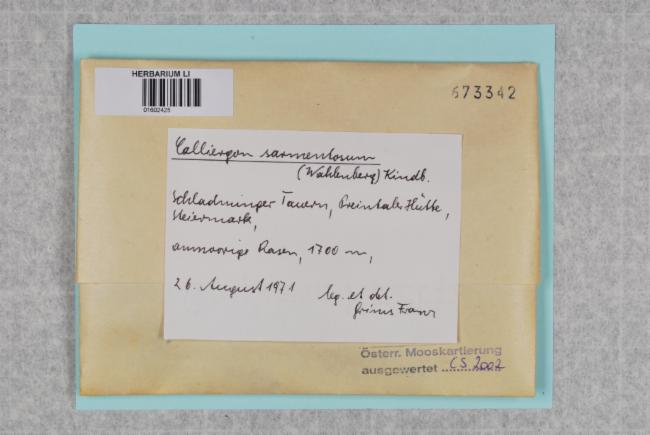 HERBARIUM LI
01602425
673342
Calliergon sarmentosum
(Wahlenberg) Kindb.
Schladminger Tauern, Preintaler Hütte,
Steiermark,
anmoorige Rasen, 1700 m,
26. August 1971
leg. et det.
Grims Franz
Österr. Mooskartierung
ausgewertet CS 2002